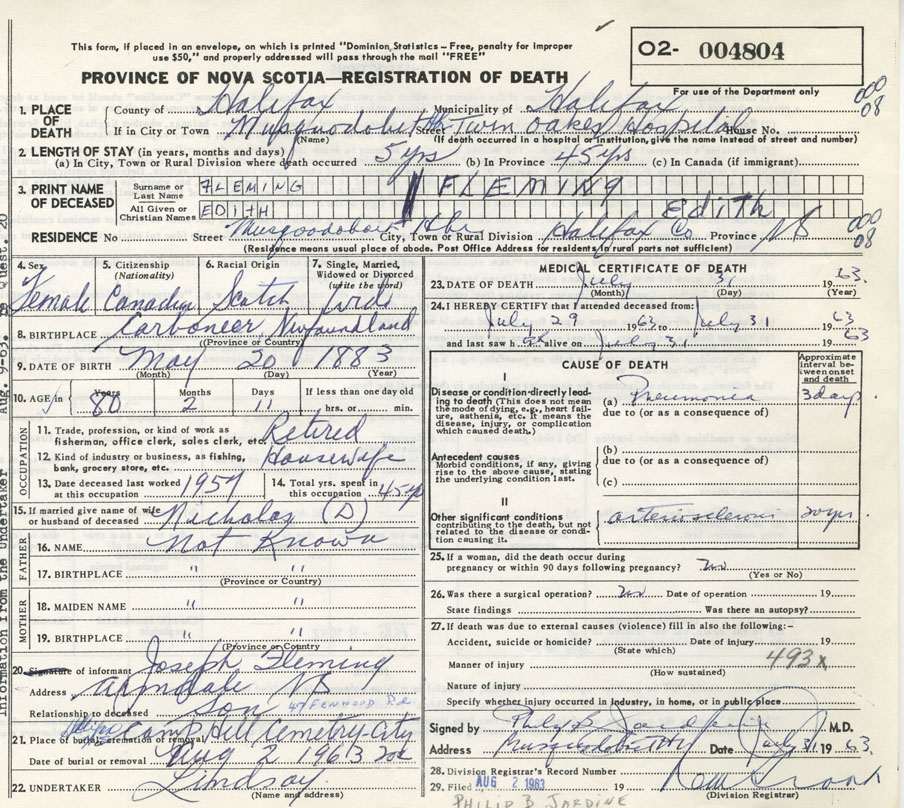 This form, if placed in an envelope, on which is printed "Dominion Statistics – Free, penalty for improper
use $50," and properly addressed will pass through the mail "FREE"
PROVINCE OF NOVA SCOTIA—REGISTRATION OF DEATH
02- 004804
For use of the Department only
000
08
1. PLACE OF DEATH
County of Halifax Municipality of Halifax
If in City or Town Musquodoboit Street Twin Oakes Hospital House No.
(Name) (If death occurred in a hospital or institution, give the name instead of street and number)
2. LENGTH OF STAY (in years, months and days)
(a) In City, Town or Rural Division where death occurred 5 yrs (b) In Province 45 yrs (c) In Canada (if immigrant)
3. PRINT NAME OF DECEASED
Surname or Last Name FLEMING FLEMING
All Given or Christian Names EDITH Edith
RESIDENCE No. Street Musqodoboit Hbr City, Town or Rural Division Halifax Co Province NS
000
08
(Residence means usual place of abode. Post Office Address for residents in rural parts not sufficient)
4. Sex Female
5. Citizenship (Nationality) Canadian
6. Racial Origin Scotch
7. Single, Married, Widowed or Divorced (write the word)
8. BIRTHPLACE Carboneer Newfoundland
(Province or Country)
9. DATE OF BIRTH May 20 1883
(Month) (Day) (Year)
10. AGE in Years Months Days If less than one day old
80 2 11 hrs. or min.
OCCUPATION
11. Trade, profession, or kind of work as fisherman, office clerk, sales clerk, etc. Retired
12. Kind of industry or business, as fishing, bank, grocery store, etc. Housewife
13. Date deceased last worked at this occupation 1957
14. Total yrs. spent in this occupation 45 yr
15. If married give name of wife or husband of deceased Nicholas (D)
FATHER
16. NAME Not Known
17. BIRTHPLACE " "
(Province or Country)
MOTHER
18. MAIDEN NAME " "
19. BIRTHPLACE " "
(Province or Country)
20. Signature of informant Joseph Fleming
Address Armdale NS
Relationship to deceased Son 47 FENWOOD RD
21. Place of burial, cremation or removal Halifax Camp Hill Cemetry-City
Date of burial or removal Aug 2 1963
22. UNDERTAKER Lindsay
(Name and address)
MEDICAL CERTIFICATE OF DEATH
23. DATE OF DEATH July 31 1963.
(Month) (Day) (Year)
24. I HEREBY CERTIFY that I attended deceased from:
July 29 1963 to July 31 1963
and last saw her alive on July 31 1963
CAUSE OF DEATH
Approximate interval between onset and death
I
Disease or condition directly leading to death (This does not mean the mode of dying, e.g., heart failure, asthenia, etc. It means the disease, injury, or complication which caused death.)
(a) Pneumonia 3 days
due to (or as a consequence of)
Antecedent causes
Morbid conditions, if any, giving rise to the above cause, stating the underlying condition last.
(b)
due to (or as a consequence of)
(c)
II
Other significant conditions contributing to the death, but not related to the disease or condition causing it.
arteriosclerosis 20 yrs.
25. If a woman, did the death occur during pregnancy or within 90 days following pregnancy? no
(Yes or No)
26. Was there a surgical operation? no Date of operation 19
State findings Was there an autopsy?
27. If death was due to external causes (violence) fill in also the following:–
Accident, suicide or homicide? Date of injury 19
(State which)
Manner of injury 493x
(How sustained)
Nature of injury
Specify whether injury occurred in industry, in home, or in public place
Signed by Philip B. Jardine M.D.
Address Musquodoboit Hr Date July 31 1963.
28. Division Registrar's Record Number
29. Filed AUG 2 1963 19
(Division Registrar)
PHILIP B JARDINE